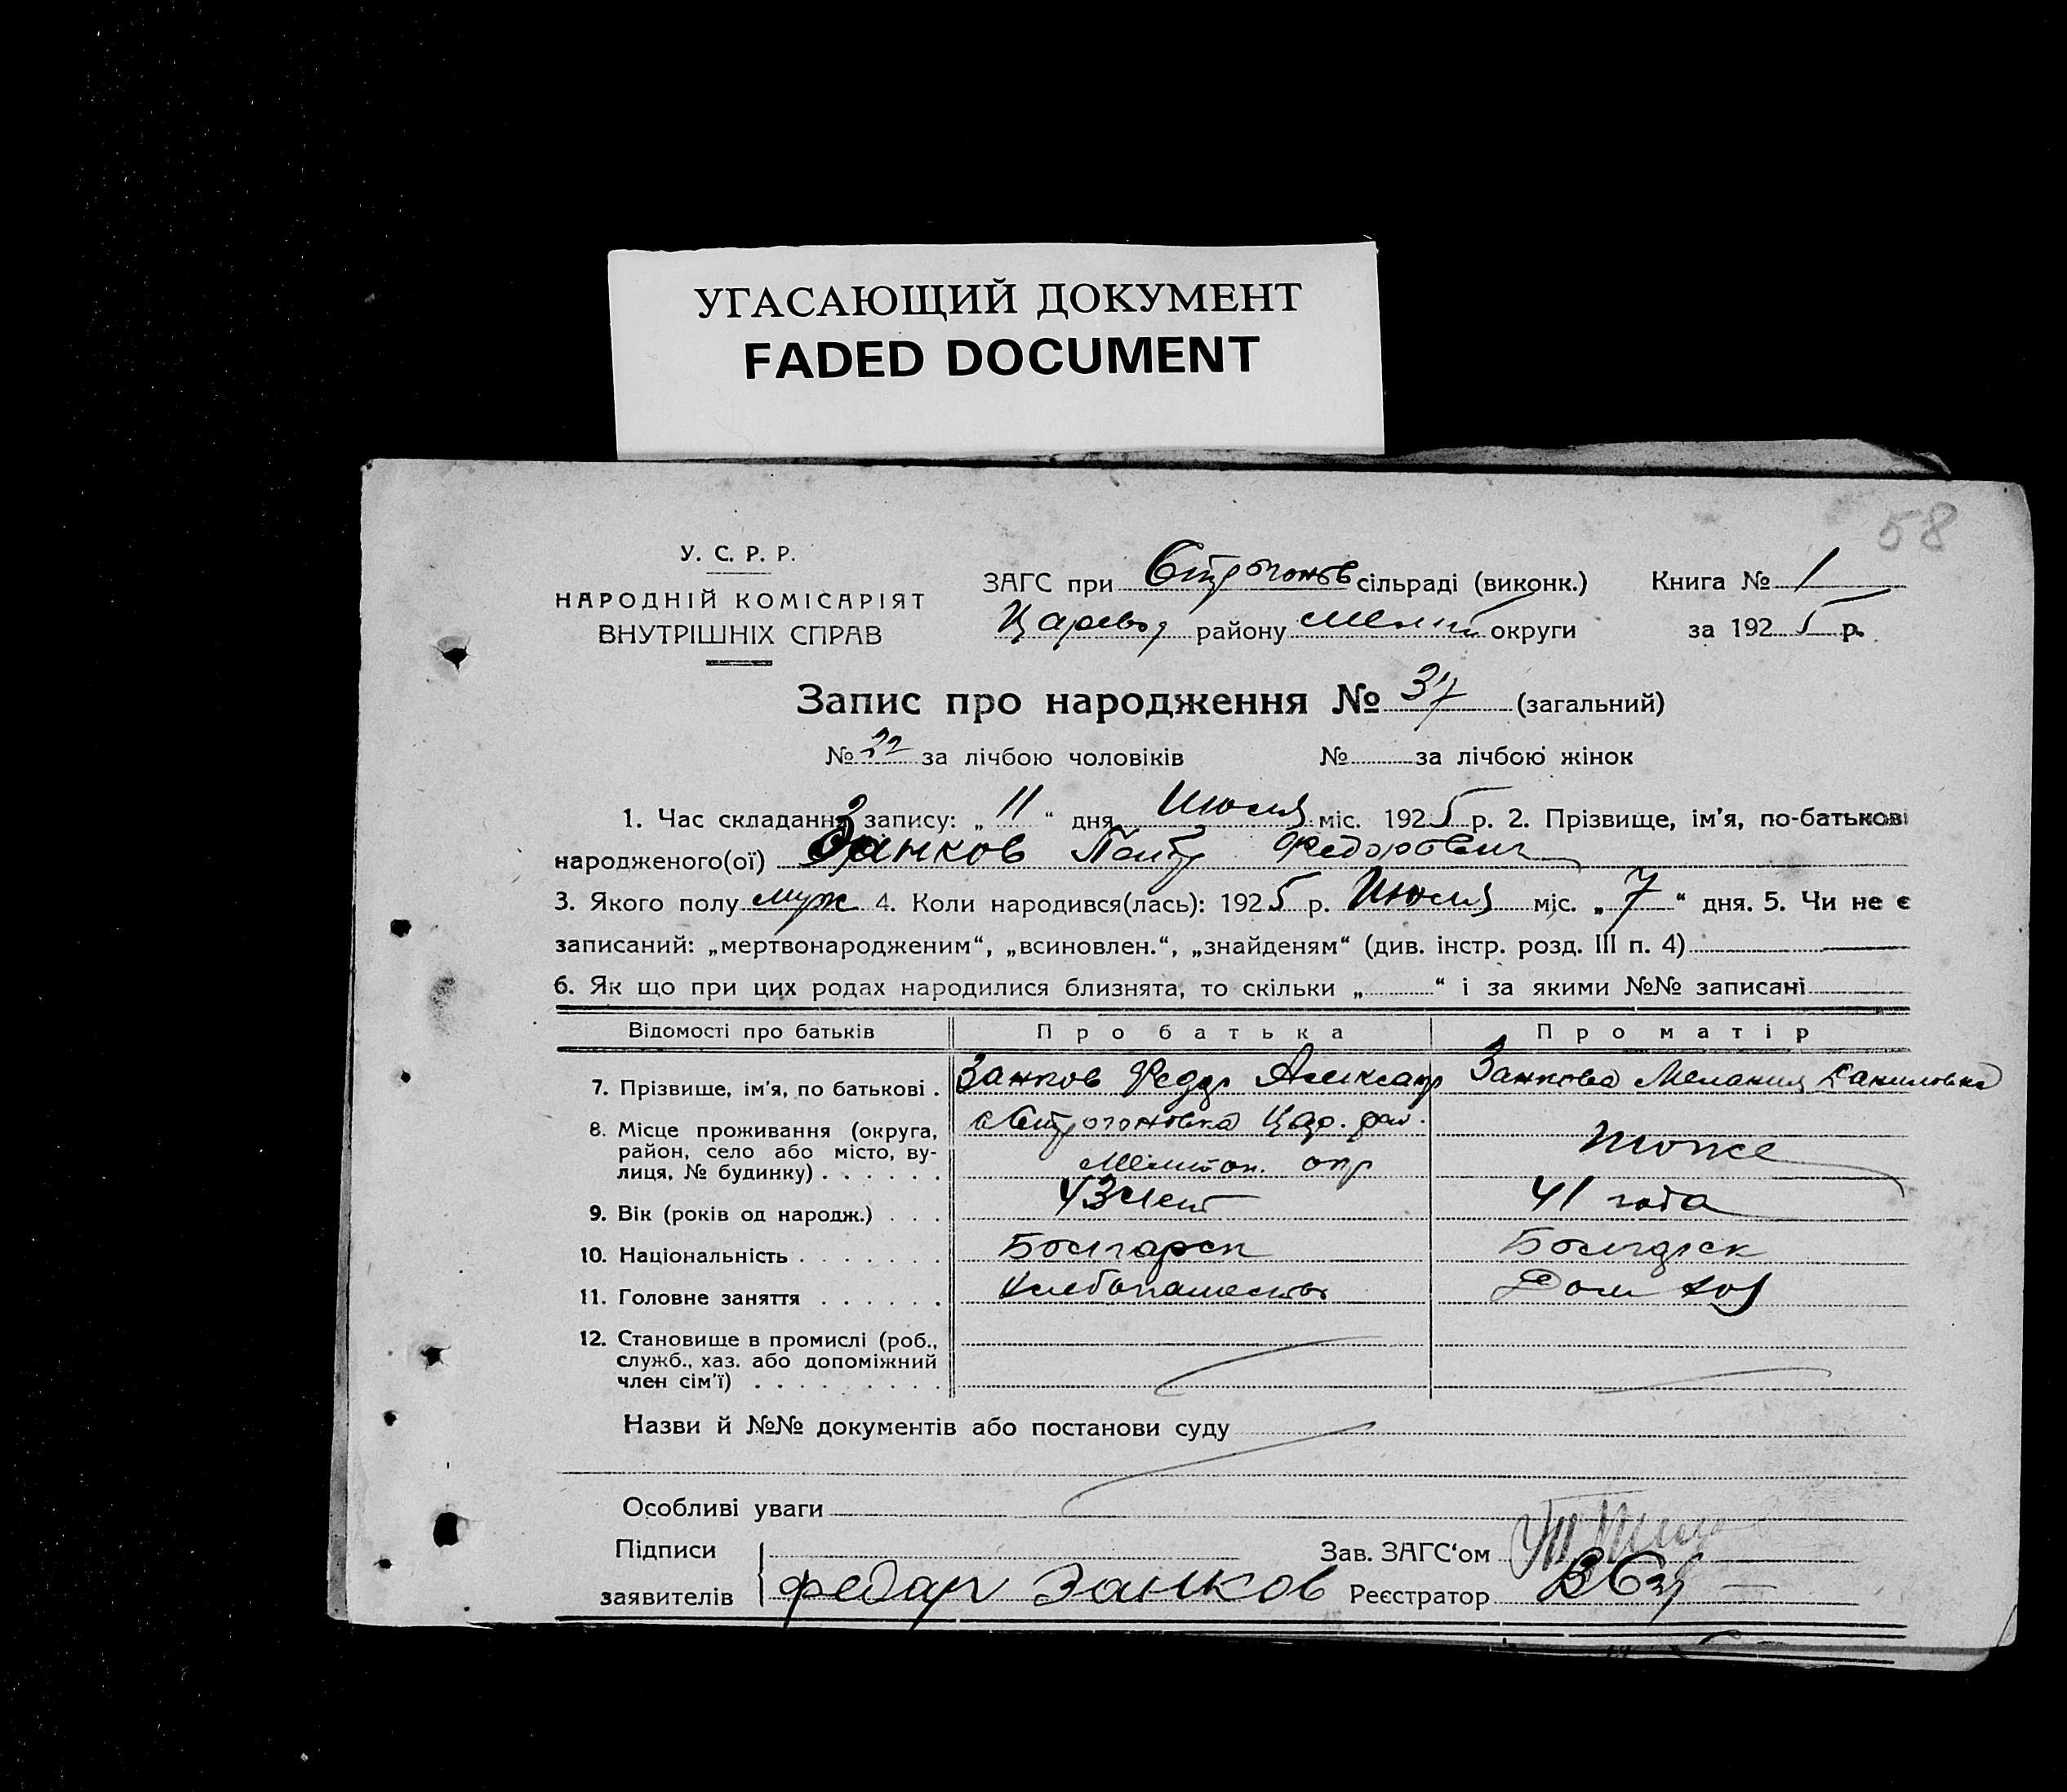 УГАСАЮЩИЙ ДОКУМЕНТ
FADED DOCUMENT
58
У. С. Р. Р.
НАРОДНІЙ КОМІСАРІЯТ
ВНУТРІШНІХ СПРАВ
ЗАГС при Строгонов сільраді (виконк.) Книга № 1
Царевод району Мелит округи за 1925 р.
Запис про народження № 37 (загальний)
№ 22 за лічбою чоловіків № за лічбою жінок
1. Час складання запису: „ 11 “ дня Июля міс. 1925 р. 2. Прізвище, ім'я, по-батькові
народженого(ої) Занков Петр Федорович
3. Якого полу муж 4. Коли народився(лась): 1925 р. Июля міс. „ 7 “ дня. 5. Чи не є
записаний: „мертвонародженим“, „всиновлен.“, „знайденям“ (див. інстр. розд. III п. 4)
6. Як що при цих родах народилися близнята, то скільки „ “ і за якими №№ записані
Відомості про батьків Про батька Про матір
7. Прізвище, ім'я, по батькові . Занков Федор Александр Занкова Мелания Даниловна
8. Місце проживання (округа, с Строгоновка Цар. рай.
район, село або місто, ву- тоже
лиця, № будинку) . . . . . . Мелитоп. окр
9. Вік (років од народж.) . . . 43 лет 41 года
10. Національність . . . . . . . Болгарск Болгарск
11. Головне заняття . . . . . . Хлебопашество Дом хоз
12. Становище в промислі (роб.,
служб., хаз. або допоміжний
член сім'ї) . . . . . . . . .
Назви й №№ документів або постанови суду
Особливі уваги
Підписи Зав. ЗАГС'ом
заявителів федар Занков Реєстратор